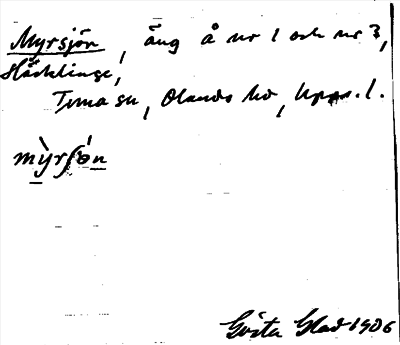 Myrsjön, äng å nr 1 och nr 3,
Häcklinge,
Tuna sn, Olands hd, Upps. l.
mỳrʃö́n
Gösta Glad 1906